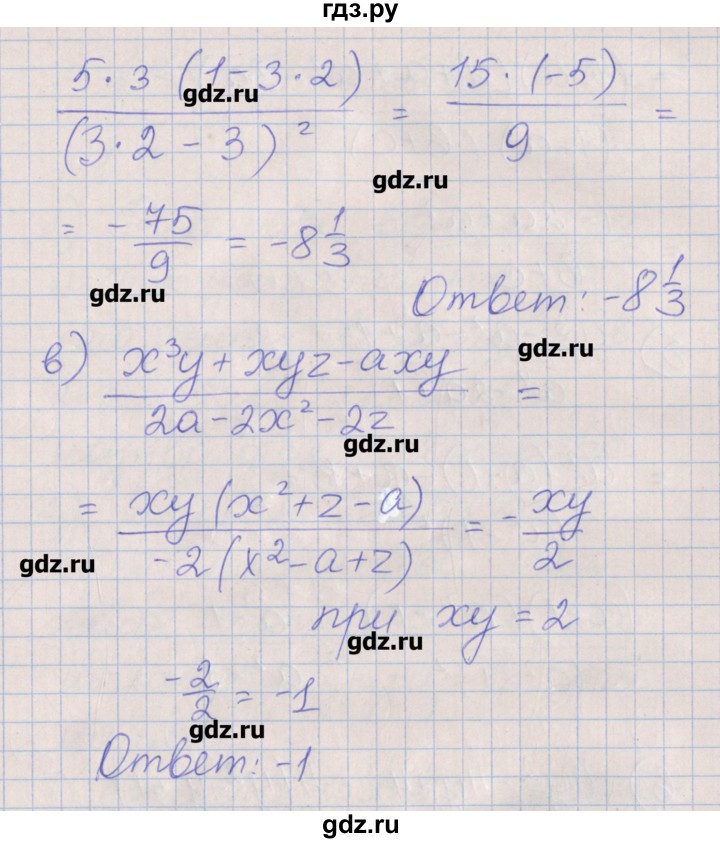 гдз.ру
5·3 (1-3·2) / (3·2-3)² = 15·(-5) / 9 =
gdz.ru
gdz.ru
= -75/9 = -8 1/3
gdz.ru
Ответ: -8 1/3
gdz.ru
в) x³y+xyz-axy / 2a-2x²-2z =
gdz.ru
= xy(x²+z-a) / -2(x²-a+z) = -xy/2
gdz.ru
при xy=2
gdz.ru
-2/2 = -1
gdz.ru
Ответ: -1
gdz.ru